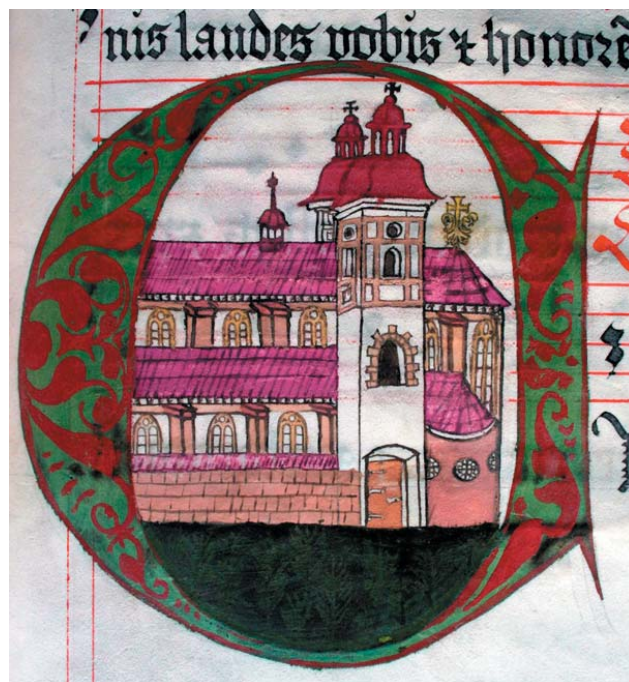 nis laudes vobis ⁊ honorē